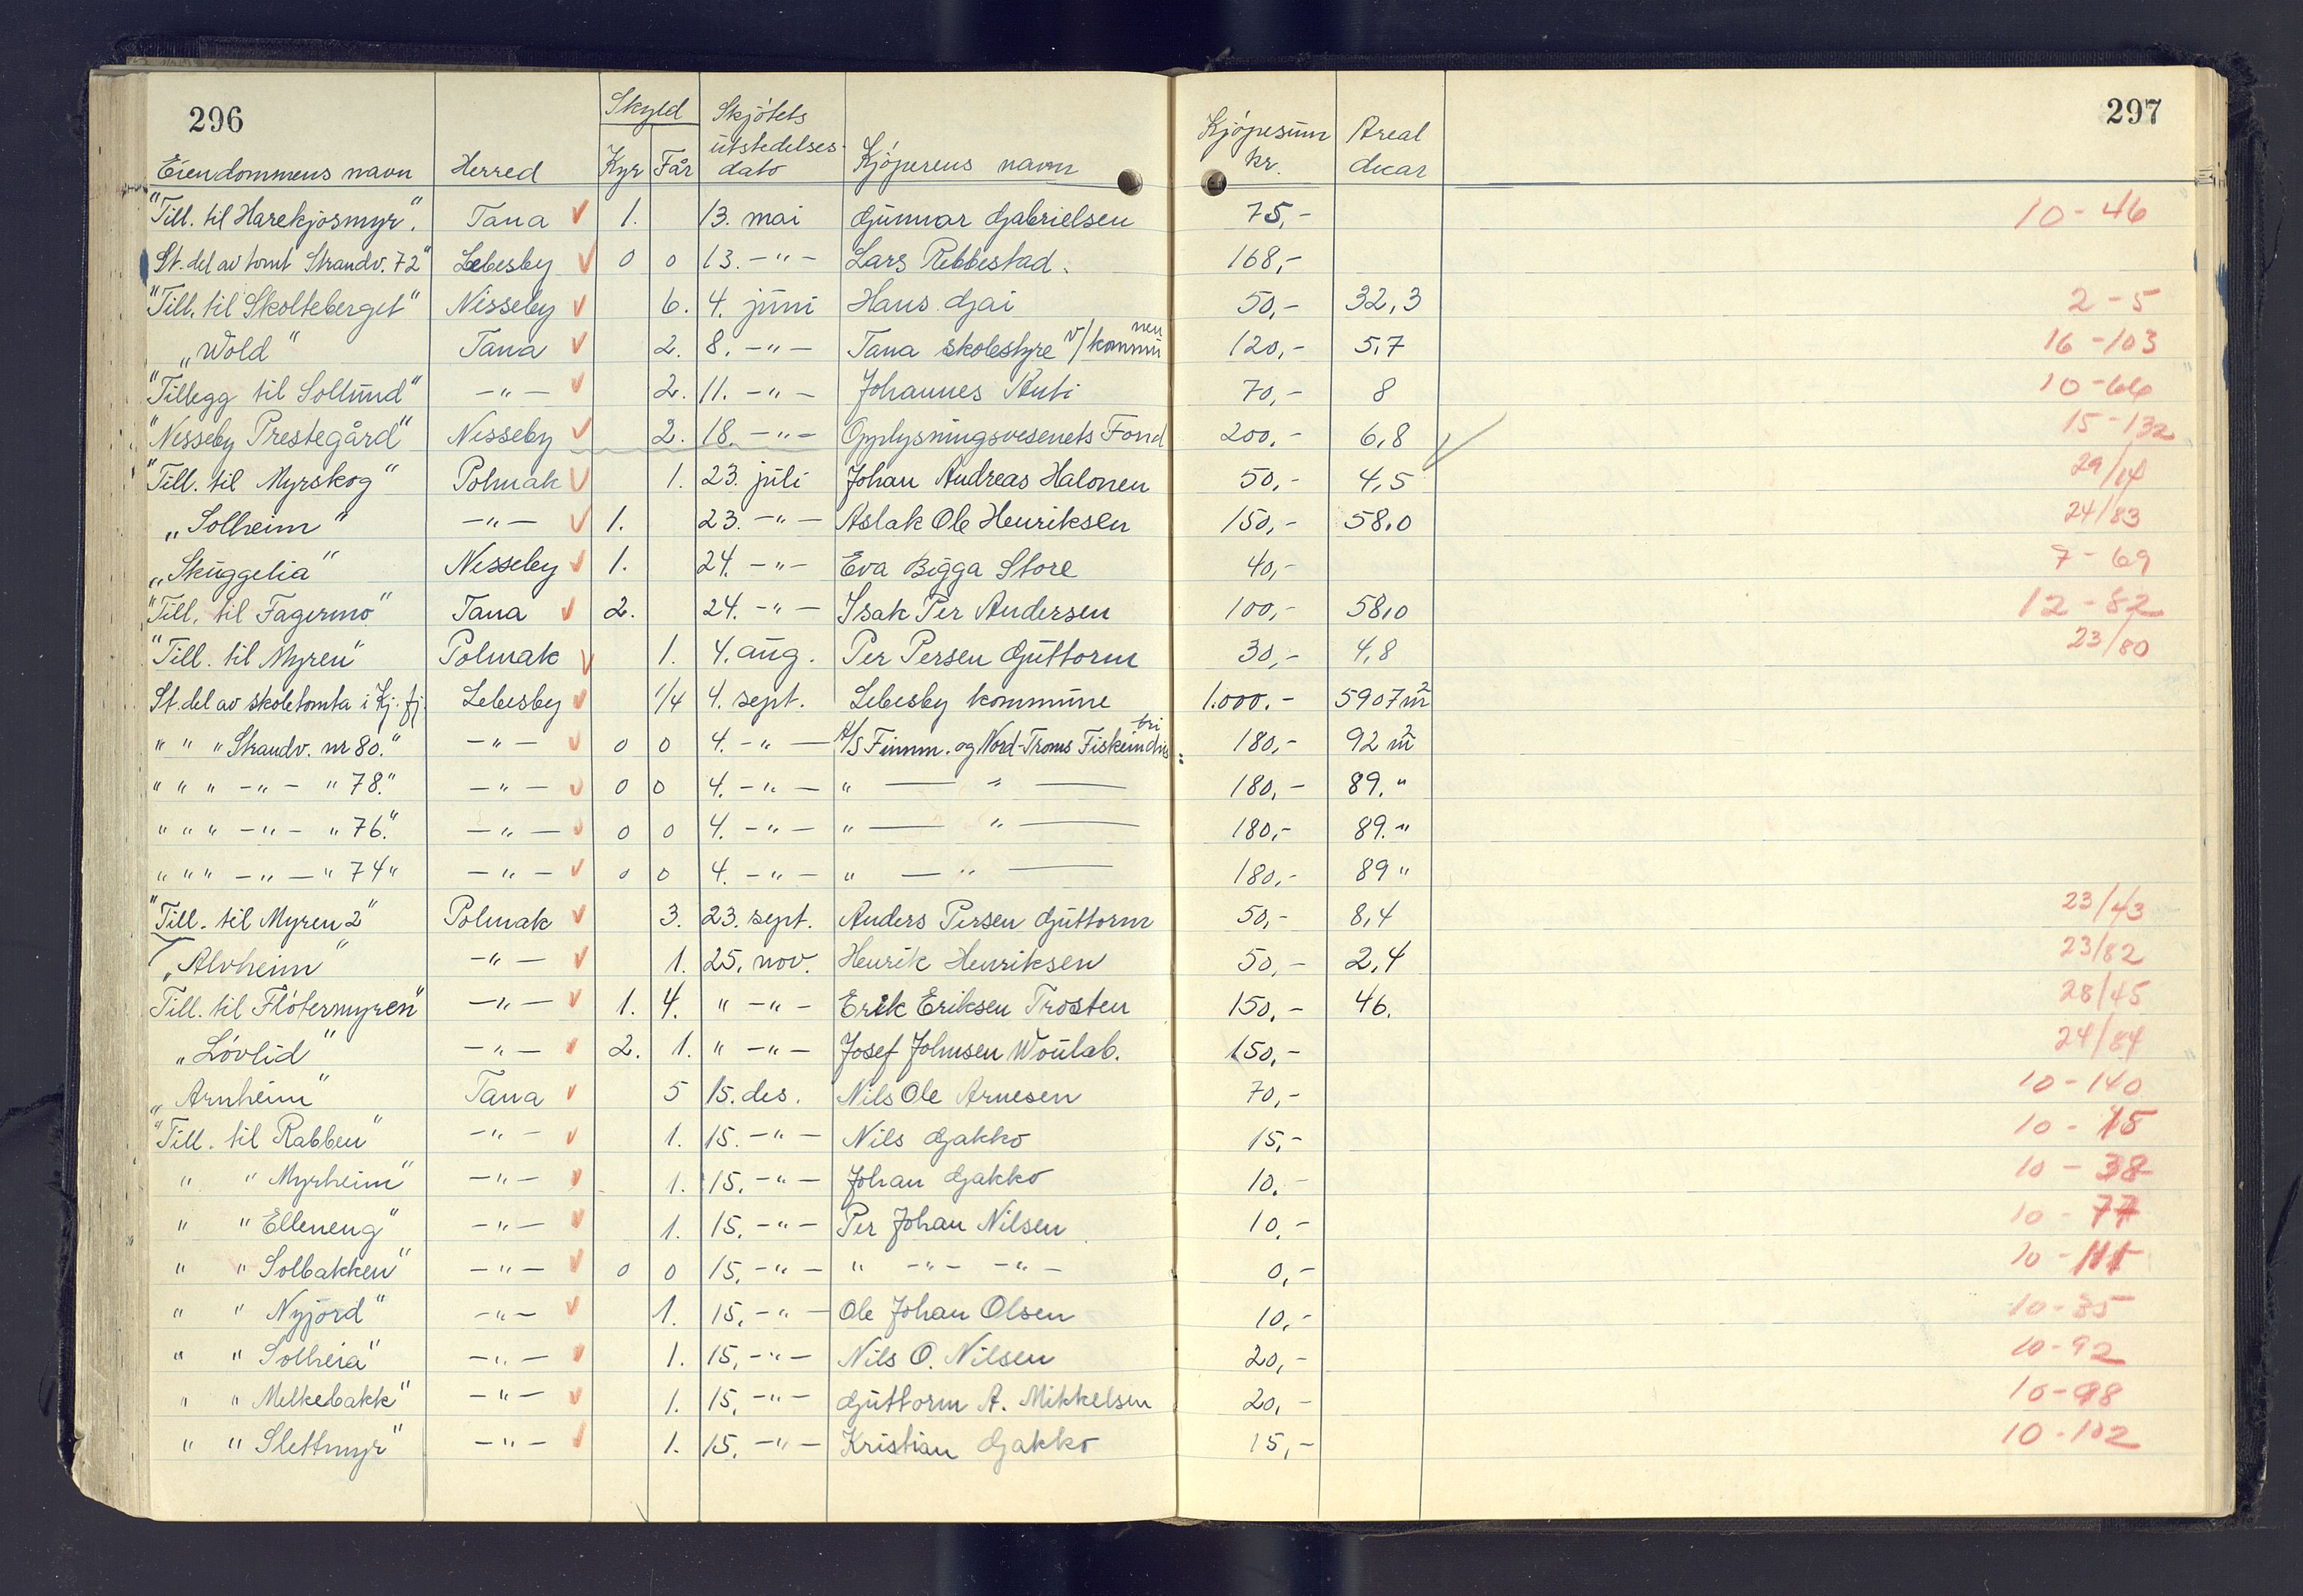 296
297
Skyld Skjøtets Kjøpesum Areal
utstedelses-
Eiendommens navn Herred Kyr Får dato Kjøperens navn kr. decar
"Till. til Harekjosmyr". Tana 1. 13. mai Gunnar Gabrielsen 75,- 10-46
St. del av tomt Strandv. 72" Lebesby 0 0 13. -"- Lars Rebbestad. 168,-
"Till. til Skolteberget" Nesseby 6. 4. juni Hans Gai 50,- 32,3 2-5
"Wold" Tana 2. 8. -"- Tana skolestyre v/kommunen 120,- 5,7 16-103
"Tillegg til Sollund" -"- 2. 11. -"- Johannes Anti 70,- 8 10-66
"Nesseby Prestegård" Nesseby 2. 18. -"- Opplysningsvesenets Fond 200,- 6,8 15-132
"Till. til Myrskog" Polmak 1. 23. juli Johan Andreas Halonen 50,- 4,5 29/14
"Solheim" -"- 1. 23. -"- Aslak Ole Henriksen 150,- 58,0 24/83
"Skuggelia" Nesseby 1. 24. -"- Eva Bigga Store 40,- 7-69
"Till. til Fagermo" Tana 2. 24. -"- Isak Per Andersen 100,- 58,0 12-82
"Till. til Myren" Polmak 1. 4. aug. Per Persen Guttorm 30,- 4,8 23/80
St. del av skoletomta i Kj. fj. Lebesby 1/4 4. sept. Lebesby kommune 1.000.- 5907 m²
" " " Strandv. nr 80." -"- 0 0 4. -"- A/S Finnm. og Nord-Troms Fiskeindustri 180,- 92 m²
" " " -"- " 78." -"- 0 0 4. -"- " — " — 180,- 89. "
" " " -"- " 76." -"- 0 0 4. -"- " — " — 180,- 89. "
" " " -"- " 74" -"- 0 0 4. -"- " — " — 180,- 89 "
"Till. til Myren 2" Polmak 3. 23. sept. Anders Persen Guttorm 50,- 8,4 23/43
"Alvheim" -"- 1. 25. nov. Henrik Henriksen 50,- 2,4 23/82
Till. til Fløtermyren" -"- 1. 4. " -"- Erik Eriksen Trosten 150,- 46. 28/45
"Løvlid" -"- 2. 1. " -"- Josef Johnsen Woulab. 150,- 24/84
"Arnheim" Tana 5 15. des. Nils Ole Arnesen 70,- 10-140
"Till. til Rabben" -"- 1. 15. -"- Nils Gakko 15,- 10-15
" " Myrheim" -"- 1. 15. -"- Johan Gakko 10.- 10-38
" " Elleneng" -"- 1. 15. -"- Per Johan Nilsen 10,- 10-77
" " Solbakken" -"- 0 0 15. -"- " -"- -"- 0,- 10-111
" " Nyjord" -"- 1. 15. -"- Ole Johan Olsen 10,- 10-85
" " Solheia" -"- 1. 15. -"- Nils O. Nilsen 20,- 10-92
" " Melkebakk" -"- 1. 15. -"- Guttorm A. Mikkelsen 20,- 10-98
" " Slettmyr" -"- 1. 15. -"- Kristian Gakko 15,- 10-102